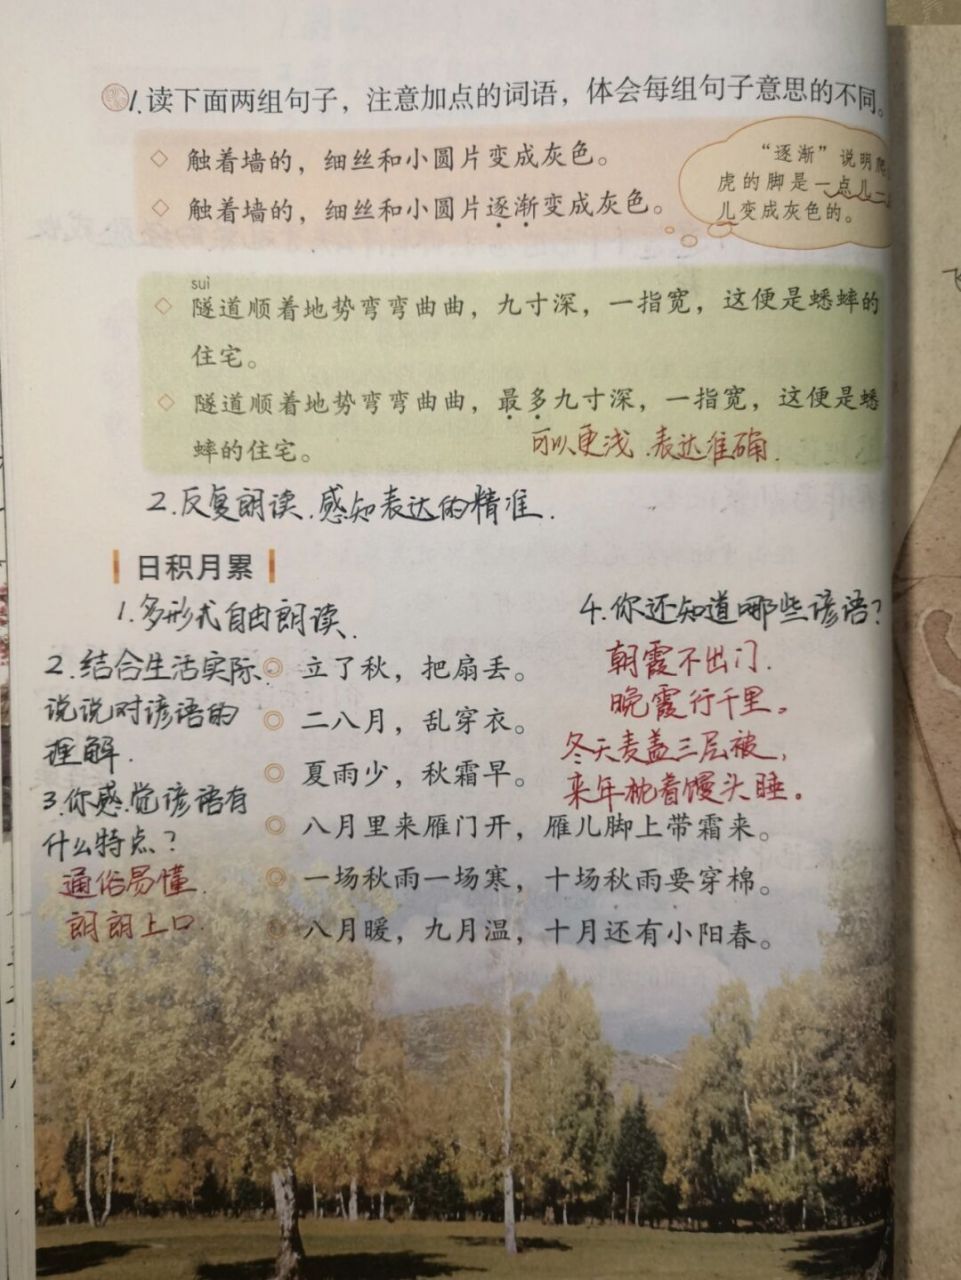 1.读下面两组句子，注意加点的词语，体会每组句子意思的不同。
触着墙的，细丝和小圆片变成灰色。
触着墙的，细丝和小圆片逐渐变成灰色。
“逐渐”说明爬
虎的脚是一点儿一
儿变成灰色的。
suì
隧道顺着地势弯弯曲曲，九寸深，一指宽，这便是蟋蟀的
住宅。
隧道顺着地势弯弯曲曲，最多九寸深，一指宽，这便是蟋
蟀的住宅。
可以更浅.表达准确.
2.反复朗读.感知表达的精准.
日积月累
1.多形式自由朗读.
2.结合生活实际
说说对谚语的
理解.
3.你感觉谚语有
什么特点？
通俗易懂.
朗朗上口.
立了秋，把扇丢。
二八月，乱穿衣。
夏雨少，秋霜早。
八月里来雁门开，雁儿脚上带霜来。
一场秋雨一场寒，十场秋雨要穿棉。
八月暖，九月温，十月还有小阳春。
4.你还知道哪些谚语？
朝霞不出门.
晚霞行千里。
冬天麦盖三层被，
来年枕着馒头睡。